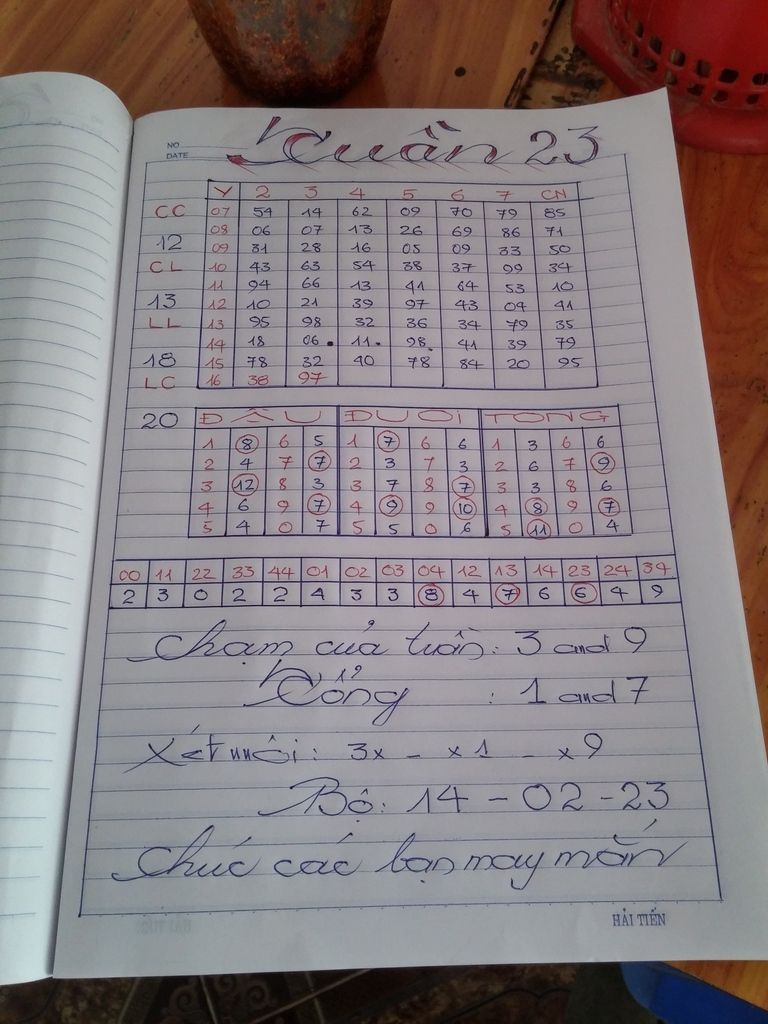 NO
DATE
Tuần 23
Y 2 3 4 5 6 7 CN
CC 07 54 14 62 09 70 79 85
08 06 07 13 26 69 86 71
12 09 81 28 16 05 09 33 50
CL 10 43 63 54 38 37 99 34
11 94 66 13 41 64 53 10
13 12 10 21 39 97 43 04 41
LL 13 95 98 32 36 34 79 35
14 18 06. 11. 98. 41 39 79
18 15 78 32 40 78 84 20 95
LC 16 38 97
20 ĐẦU ĐUOI TONG
1 8 6 5 1 7 6 6 1 3 6 6
2 4 7 7 2 3 7 3 2 6 7 9
3 12 8 3 3 7 8 7 3 3 8 6
4 6 9 7 4 9 9 10 4 8 9 7
5 4 0 7 5 5 0 6 5 11 0 4
00 11 22 33 44 01 02 03 04 12 13 14 23 24 34
2 3 0 2 2 4 3 3 8 4 7 6 6 4 9
Chạm của tuần: 3 and 9
Tổng : 1 and 7
Xét nuôi: 3x - x1 - x9
Bộ: 14 - 02 - 23
Chúc các bạn may mắn
HẢI TIẾN